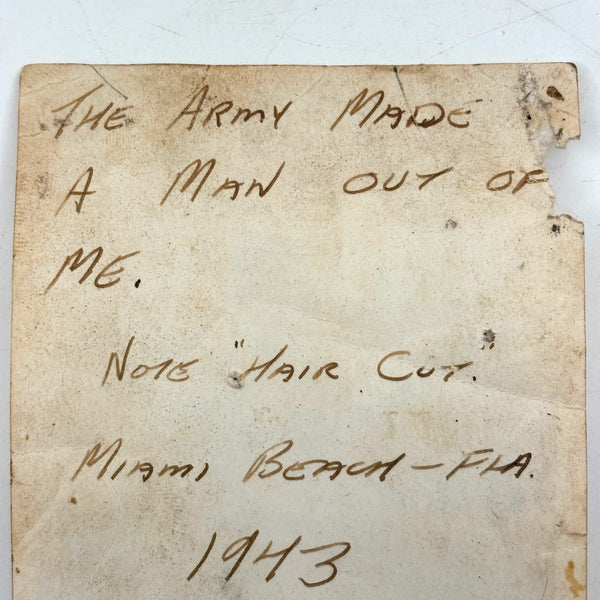 THE ARMY MADE
A MAN OUT OF
ME.
NOTE "HAIR CUT."
MIAMI BEACH - FLA.
1943